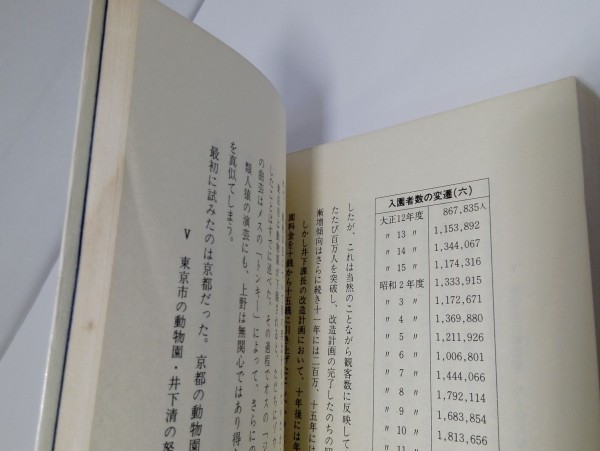 したが、これは当然のことながら観客数に反映して
たたび百万人を突破し、改造計画の完了したのちの昭
漸増傾向はさらに続き十一年には二百万、十五年には
しかし井下課長の改造計画において、十年後には年
園料金を十銭から十五銭に引き上げ
入園者数の変遷(六)
大正12年度 867,835人
〃 13 〃 1,153,892
〃 14 〃 1,344,067
〃 15 〃 1,174,316
昭和 2 年度 1,333,915
〃 3 〃 1,172,671
〃 4 〃 1,369,880
〃 5 〃 1,211,926
〃 6 〃 1,006,801
〃 7 〃 1,444,066
〃 8 〃 1,792,114
〃 9 〃 1,683,854
〃 10 〃 1,813,656
〃 11
したことはすでに述べた。その過程でオスの「ジ
の曲芸はメスの「トンキー」によって、さらにの
類人猿の演芸にも、上野は無関心ではあり得
を真似てしまう。
最初に試みたのは京都だった。京都の動物園
Ⅴ 東京市の動物園・井下清の努